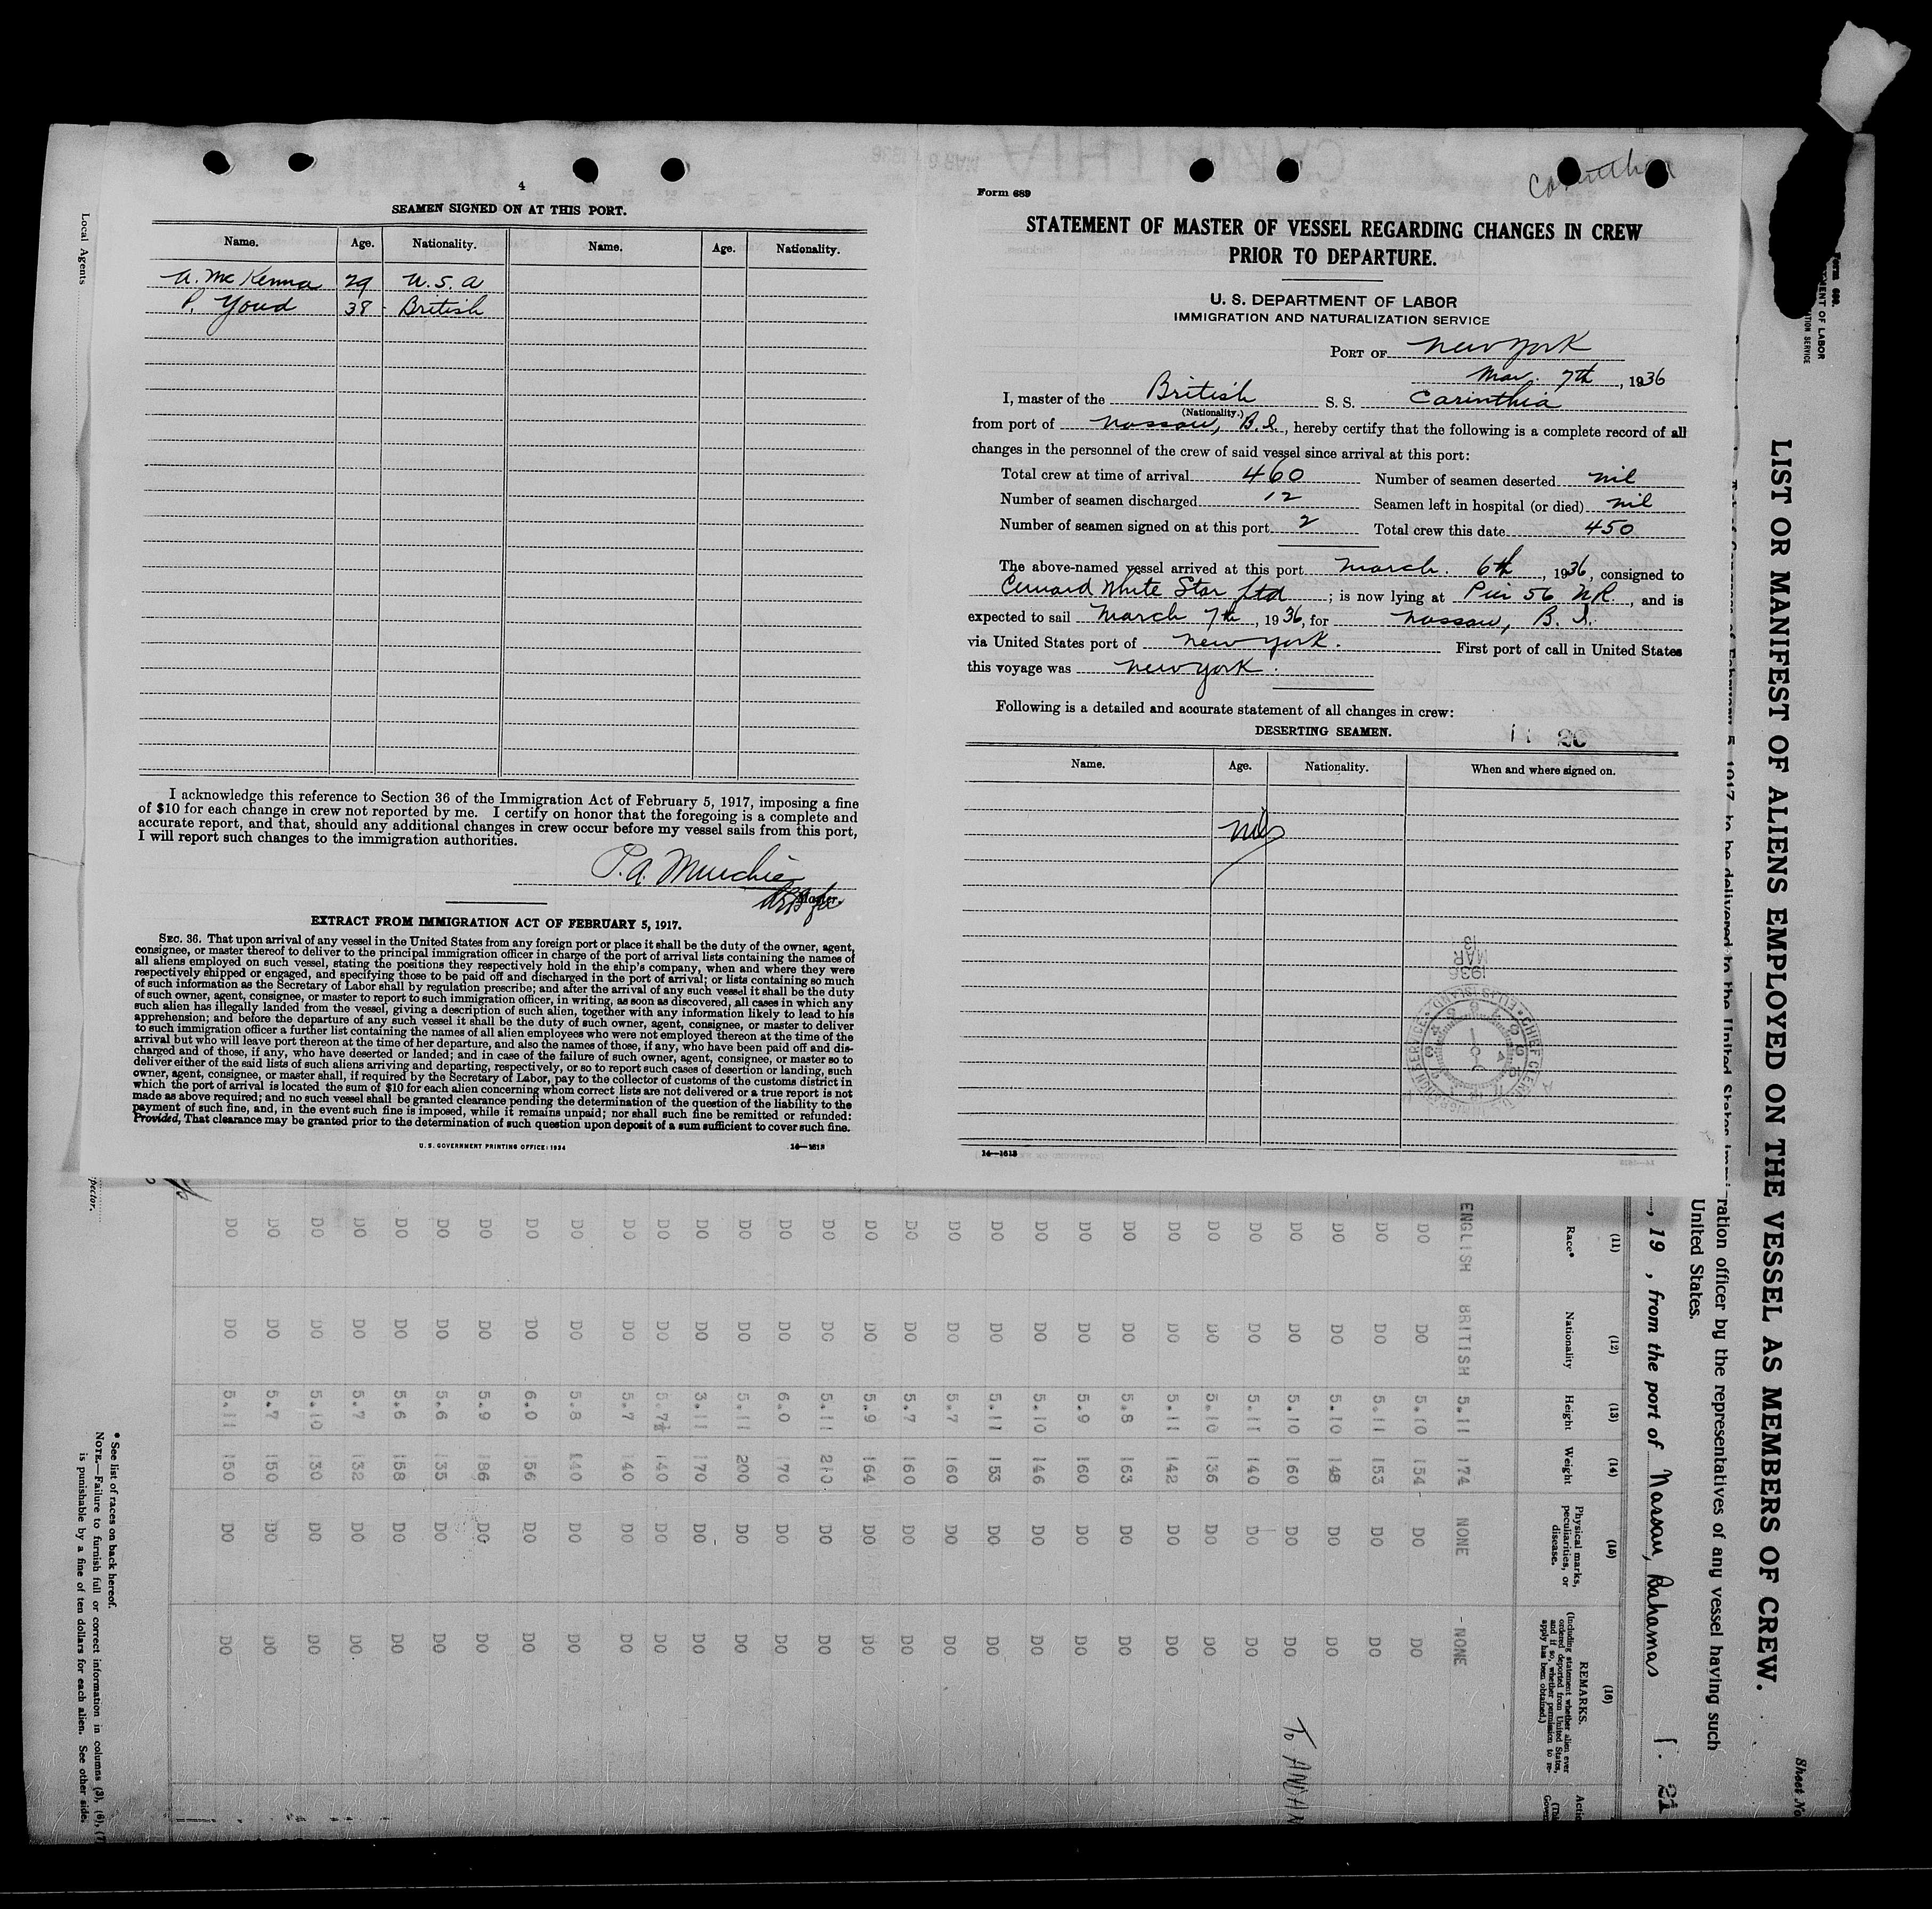 4
SEAMEN SIGNED ON AT THIS PORT.
Name. Age. Nationality. Name. Age. Nationality.
A. McKenna 29 U.S.A
P. Youd 38 British
I acknowledge this reference to Section 36 of the Immigration Act of February 5, 1917, imposing a fine
of $10 for each change in crew not reported by me. I certify on honor that the foregoing is a complete and
accurate report, and that, should any additional changes in crew occur before my vessel sails from this port,
I will report such changes to the immigration authorities.
P.A. Murchie
Master.
EXTRACT FROM IMMIGRATION ACT OF FEBRUARY 5, 1917.
SEC. 36. That upon arrival of any vessel in the United States from any foreign port or place it shall be the duty of the owner, agent,
consignee, or master thereof to deliver to the principal immigration officer in charge of the port of arrival lists containing the names of
all aliens employed on such vessel, stating the positions they respectively hold in the ship's company, when and where they were
respectively shipped or engaged, and specifying those to be paid off and discharged in the port of arrival; or lists containing so much
of such information as the Secretary of Labor shall by regulation prescribe; and after the arrival of any such vessel it shall be the duty
of such owner, agent, consignee, or master to report to such immigration officer, in writing, as soon as discovered, all cases in which any
such alien has illegally landed from the vessel, giving a description of such alien, together with any information likely to lead to his
apprehension; and before the departure of any such vessel it shall be the duty of such owner, agent, consignee, or master to deliver
to such immigration officer a further list containing the names of all alien employees who were not employed thereon at the time of the
arrival but who will leave port thereon at the time of her departure, and also the names of those, if any, who have been paid off and dis-
charged and of those, if any, who have deserted or landed; and in case of the failure of such owner, agent, consignee, or master so to
deliver either of the said lists of such aliens arriving and departing, respectively, or so to report such cases of desertion or landing, such
owner, agent, consignee, or master shall, if required by the Secretary of Labor, pay to the collector of customs of the customs district in
which the port of arrival is located the sum of $10 for each alien concerning whom correct lists are not delivered or a true report is not
made as above required; and no such vessel shall be granted clearance pending the determination of the question of the liability to the
payment of such fine, and, in the event such fine is imposed, while it remains unpaid; nor shall such fine be remitted or refunded:
Provided, That clearance may be granted prior to the determination of such question upon deposit of a sum sufficient to cover such fine.
U. S. GOVERNMENT PRINTING OFFICE: 1934 14—1613
Form 689
Carinthia
STATEMENT OF MASTER OF VESSEL REGARDING CHANGES IN CREW
PRIOR TO DEPARTURE.
U. S. DEPARTMENT OF LABOR
IMMIGRATION AND NATURALIZATION SERVICE
PORT OF New York
Mar. 7th, 1936
I, master of the British S. S. Carinthia
(Nationality.)
from port of Nassau, B.I., hereby certify that the following is a complete record of all
changes in the personnel of the crew of said vessel since arrival at this port:
Total crew at time of arrival 460 Number of seamen deserted nil
Number of seamen discharged 12 Seamen left in hospital (or died) nil
Number of seamen signed on at this port 2 Total crew this date 450
The above-named vessel arrived at this port March. 6th, 1936, consigned to
Cunard White Star Ltd; is now lying at Pier 56 N.R., and is
expected to sail March 7th, 1936, for Nassau, B.I.
via United States port of New York. First port of call in United States
this voyage was New York.
Following is a detailed and accurate statement of all changes in crew:
DESERTING SEAMEN.
Name. Age. Nationality. When and where signed on.
nil
1936
MAR
13
14—1613
Local Agents
LIST OR MANIFEST OF ALIENS EMPLOYED ON THE VESSEL AS MEMBERS OF CREW.
Sheet No
ration officer by the representatives of any vessel having such
United States.
, 19 , from the port of Nassau, Bahamas
21
(11) (12) (13) (14) (15) (16)
Race* Nationality Height Weight Physical marks, peculiarities, or disease. REMARKS.
(Including statement whether alien ever ordered deported from United States, and if so, whether permission to reapply has been obtained.)
ENGLISH BRITISH 5.11 174 NONE NONE
DO DO 5.10 154 DO DO
DO DO 5.11 153 DO DO
DO DO 5.10 148 DO DO
DO DO 5.10 160 DO DO To ANDAN
DO DO 5.11 140 DO DO
DO DO 5.10 136 DO DO
DO DO 5.11 142 DO DO
DO DO 5.8 163 DO DO
DO DO 5.9 160 DO DO
DO DO 5.10 146 DO DO
DO DO 5.11 153 DO DO
DO DO 5.7 160 DO DO
DO DO 5.7 160 DO DO
DO DO 5.9 164 DO DO
DO DO 5.11 210 DO DO
DO DO 6.0 170 DO DO
DO DO 5.11 200 DO DO
DO DO 3.11 170 DO DO
DO DO 5.7½ 140 DO DO
DO DO 5.7 140 DO DO
DO DO 5.8 140 DO DO
DO DO 6.0 156 DO DO
DO DO 5.9 186 DO DO
DO DO 5.6 135 DO DO
DO DO 5.6 158 DO DO
DO DO 5.7 132 DO DO
DO DO 5.10 130 DO DO
DO DO 5.7 150 DO DO
DO DO 5.11 150 DO DO
* See list of races on back hereof.
NOTE.—Failure to furnish full or correct information in columns (3), (6), (7)
is punishable by a fine of ten dollars for each alien. See other side.